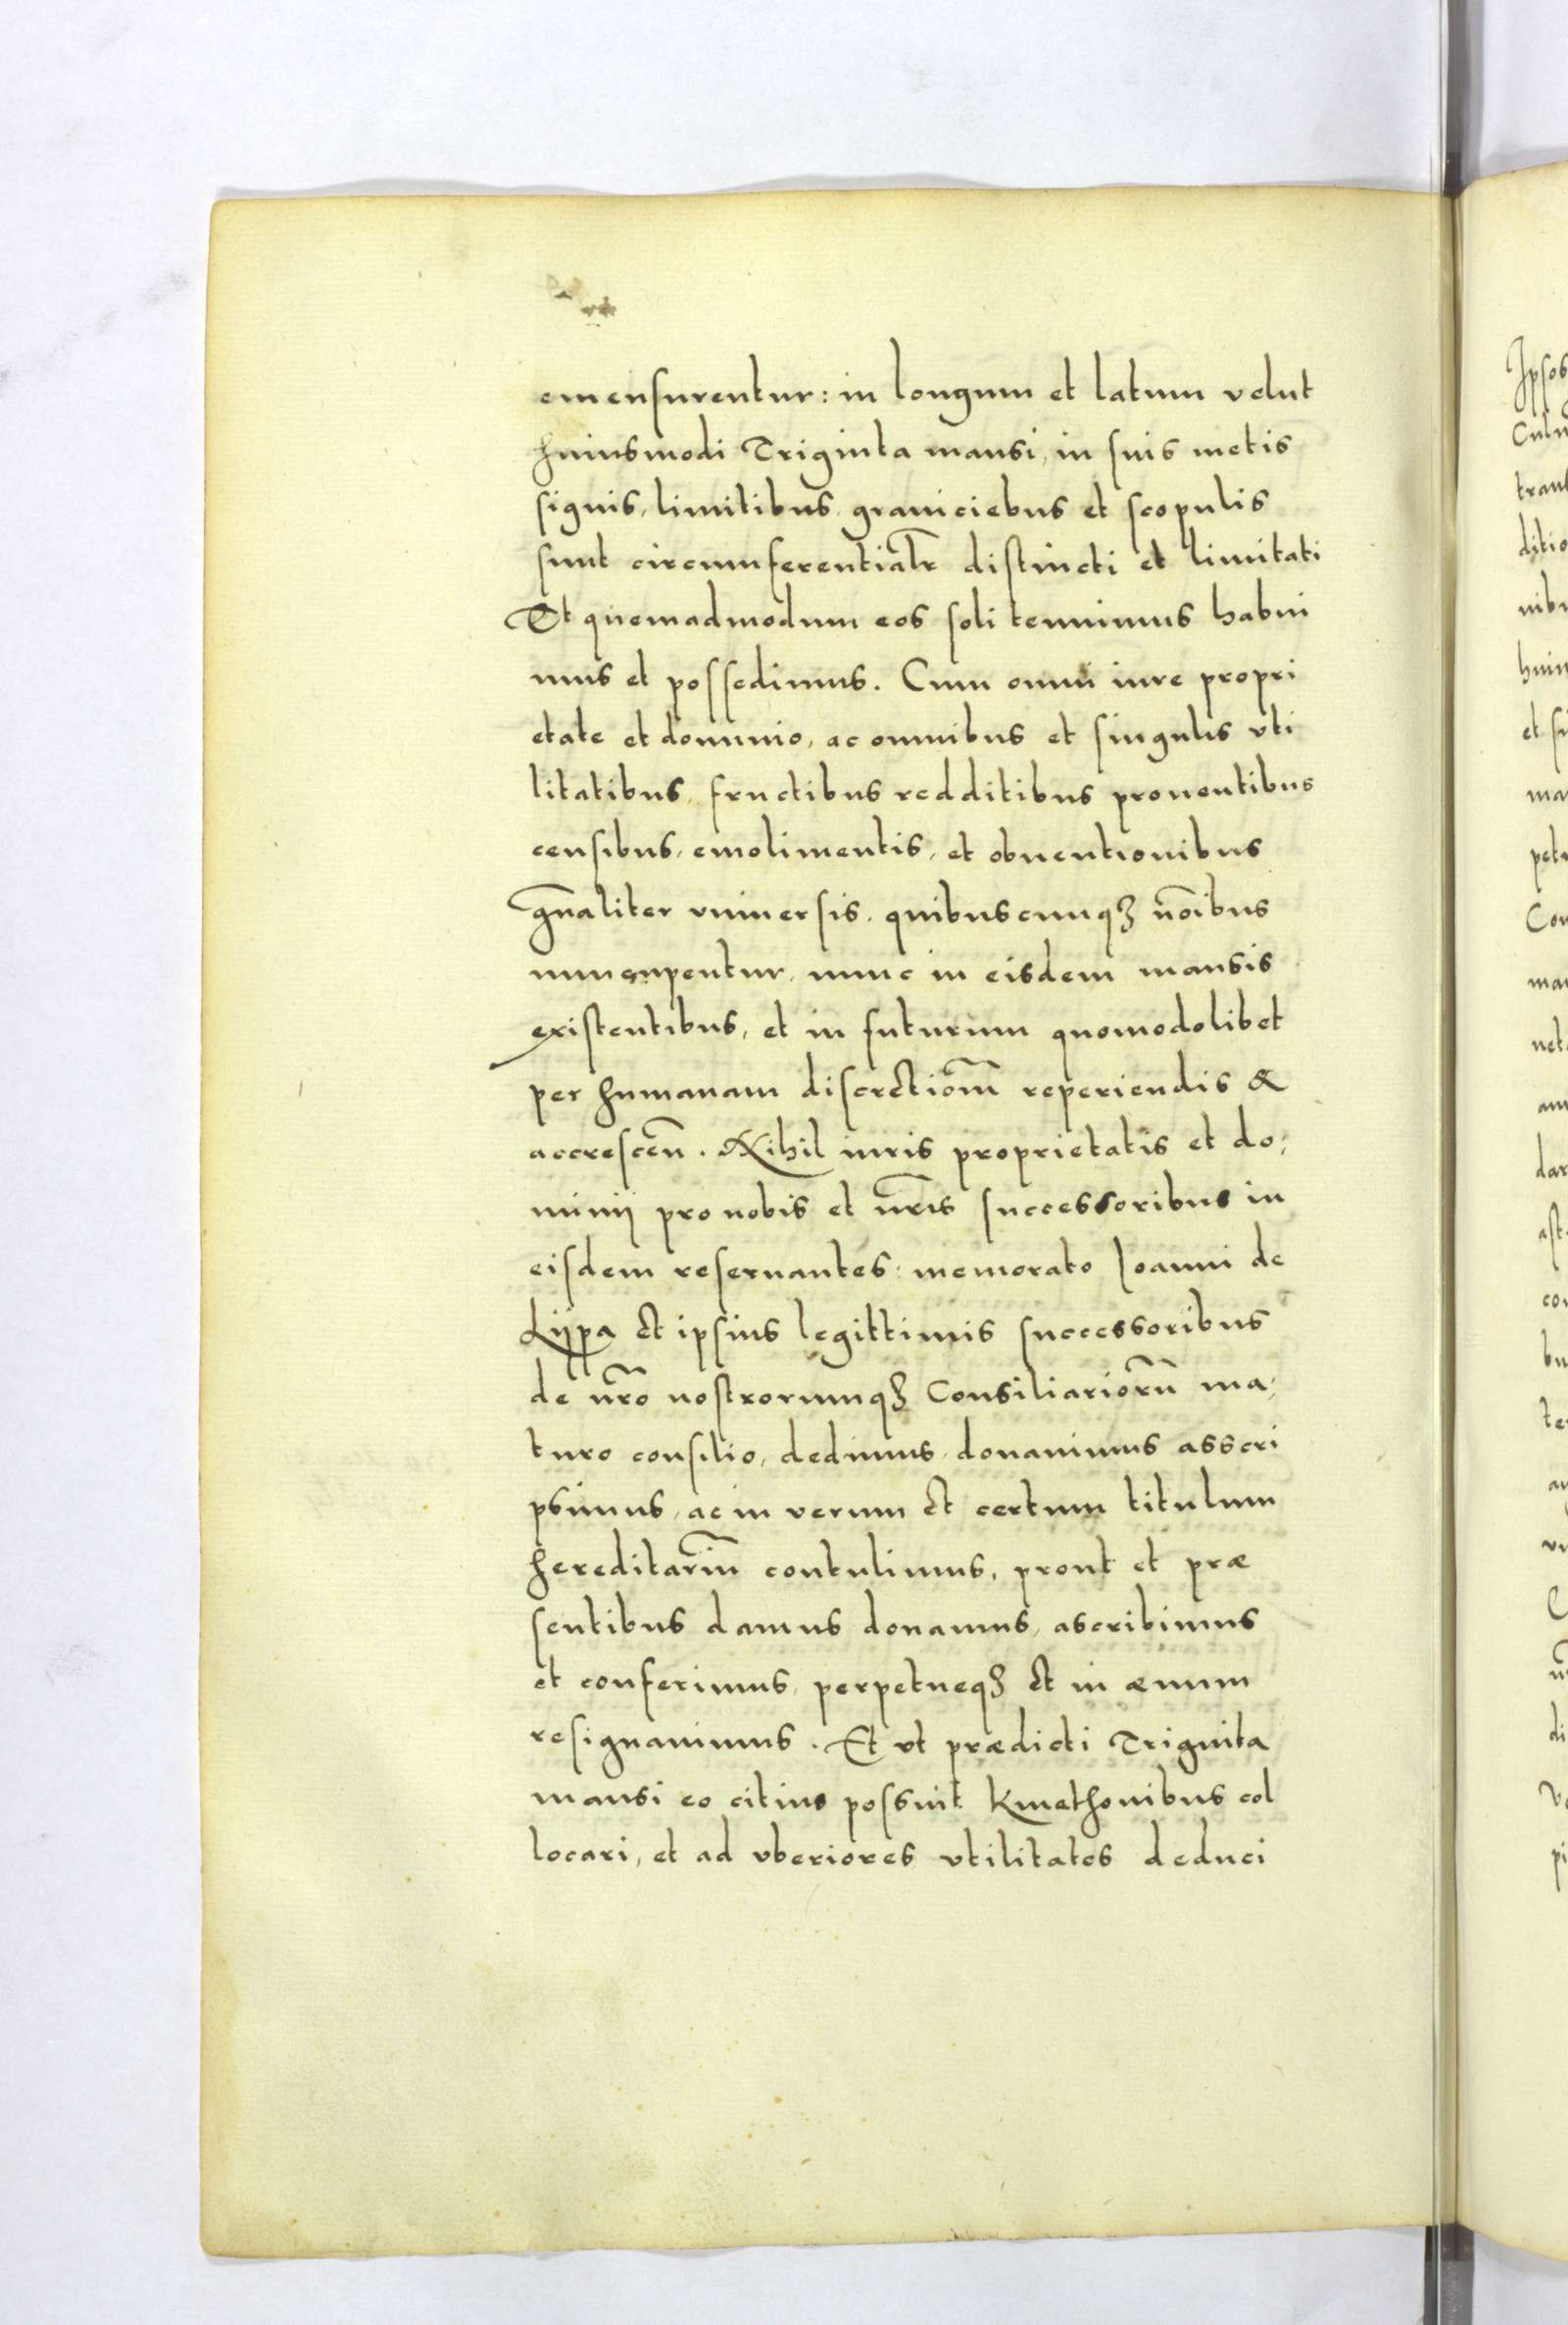 emensurentur: in longum et latum velut
huiusmodi Triginta mansi, in suis metis
signis, limitibus, graniciebus et scopulis
sunt circumferentialr̃ distincti et limitati
Et quemadmodum eos soli tenuimus habui
mus et possedimus. Cum omni iure propri
etate et dominio, ac omnibus et singulis vti
litatibus, fructibus redditibus prouentibus
censibus, emolimentis, et obuentionibus
gñaliter vniuersis, quibuscumqȝ nõibus
nuncupentur, nunc in eisdem mansis
existentibus, et in futurum quomodolibet
per humanam discrectiom̃ reperiendis &
accrescen̄. Nihil iuris proprietatis et do,
minij pro nobis et nr̃is successoribus in
eisdem reseruantes: memorato Ioanni de
Lijpa et ipsius legittimis successoribus
de nr̃o nostrorumqȝ Consiliariorũ ma,
turo consilio, dedimus, donauimus asscri
psimus, ac in verum et certum titulum
hereditariũ contulimus, prout et præ
sentibus damus donamus, ascribimus
et conferimus, perpetueqȝ et in æuum
resignauimus. Et vt prædicti Triginta
mansi eo citius possint Kmethonibus col
locari, et ad vberiores vtilitates deduci